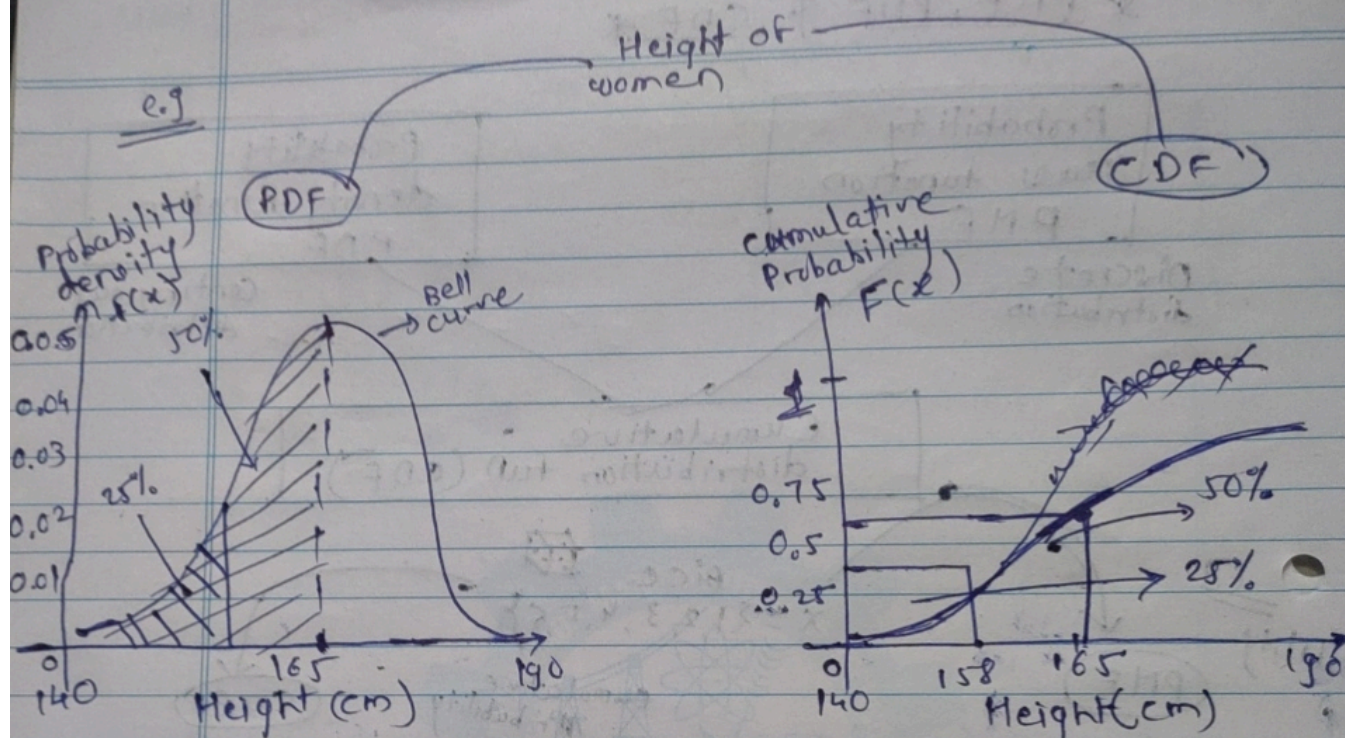 Height of
women
e.g
PDF
CDF
Probability
density
f(x)
50%
25%
Bell
curve
0.05
0.04
0.03
0.02
0.01
0
140
165
190
Height (cm)
Cumulative
Probability
F(x)
1
0.75
0.5
0.25
50%
25%
0
140
158
165
190
Height(cm)